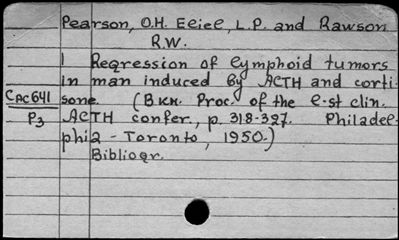 Pearson, O.H. Eeiee, L.P. and Rawson
R.W.
1 Regression of eymphoid tumors
in man induced by ACTH and corti-
CAC641 sone. (Bкн. Proc. of the e-st clin.
P3 ACTH confer., p. 318-327. Philadel-
phia - Toronto, 1950.)
Bibliogr.